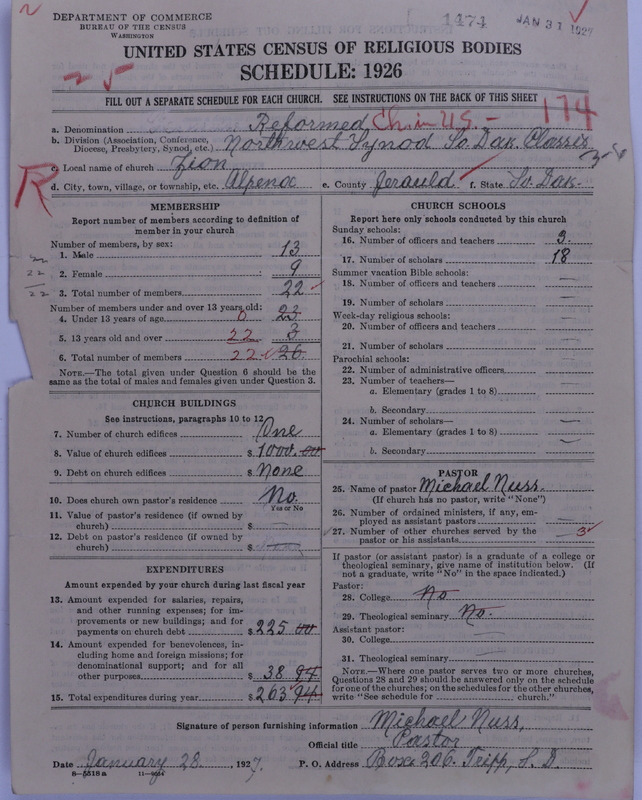 DEPARTMENT OF COMMERCE
BUREAU OF THE CENSUS
WASHINGTON
1474
JAN 31 1927
UNITED STATES CENSUS OF RELIGIOUS BODIES
SCHEDULE: 1926
FILL OUT A SEPARATE SCHEDULE FOR EACH CHURCH. SEE INSTRUCTIONS ON THE BACK OF THIS SHEET
174
a. Denomination Reformed Ch in U.S. -
b. Division (Association, Conference, Diocese, Presbytery, Synod, etc.) Northwest Synod So. Dak. Classis
c. Local name of church Zion
d. City, town, village, or township, etc. Alpena e. County Jerauld f. State So. Dak.
R
MEMBERSHIP
Report number of members according to definition of member in your church
Number of members, by sex:
1. Male 13
2. Female 9
3. Total number of members 22
22
22
Number of members under and over 13 years old:
4. Under 13 years of age 0 23
5. 13 years old and over 22 3
6. Total number of members 22 26
NOTE.—The total given under Question 6 should be same as the total of males and females given under Question 3.
CHURCH BUILDINGS
See instructions, paragraphs 10 to 12
7. Number of church edifices One
8. Value of church edifices $ 1000.00
9. Debt on church edifices $ None
10. Does church own pastor's residence No.
Yes or No
11. Value of pastor's residence (if owned by church) $
12. Debt on pastor's residence (if owned by church) $
EXPENDITURES
Amount expended by your church during last fiscal year
13. Amount expended for salaries, repairs, and other running expenses; for improvements or new buildings; and for payments on church debt $ 225 00
14. Amount expended for benevolences, including home and foreign missions; for denominational support; and for all other purposes $ 38.94
15. Total expenditures during year $ 263 94
CHURCH SCHOOLS
Report here only schools conducted by this church
Sunday schools:
16. Number of officers and teachers 3.
17. Number of scholars 18
Summer vacation Bible schools:
18. Number of officers and teachers —
19. Number of scholars —
Week-day religious schools:
20. Number of officers and teachers —
21. Number of scholars —
Parochial schools:
22. Number of administrative officers —
23. Number of teachers—
a. Elementary (grades 1 to 8) —
b. Secondary —
24. Number of scholars—
a. Elementary (grades 1 to 8) —
b. Secondary
PASTOR
25. Name of pastor Michael Nuss.
(If church has no pastor, write "None")
26. Number of ordained ministers, if any, employed as assistant pastors —
27. Number of other churches served by the pastor or his assistants 3
If pastor (or assistant pastor) is a graduate of a college or theological seminary, give name of institution below. (If not a graduate, write "No" in the space indicated.)
Pastor:
28. College No
29. Theological seminary No.
Assistant pastor:
30. College —
31. Theological seminary —
NOTE.—Where one pastor serves two or more churches, Questions 28 and 29 should be answered only on the schedule for one of the churches; on the schedules for the other churches, write "See schedule for church."
Signature of person furnishing information Michael Nuss,
Official title Pastor
Date January 28, 1927. P. O. Address Box 206. Tripp, S. D.
8—5518a